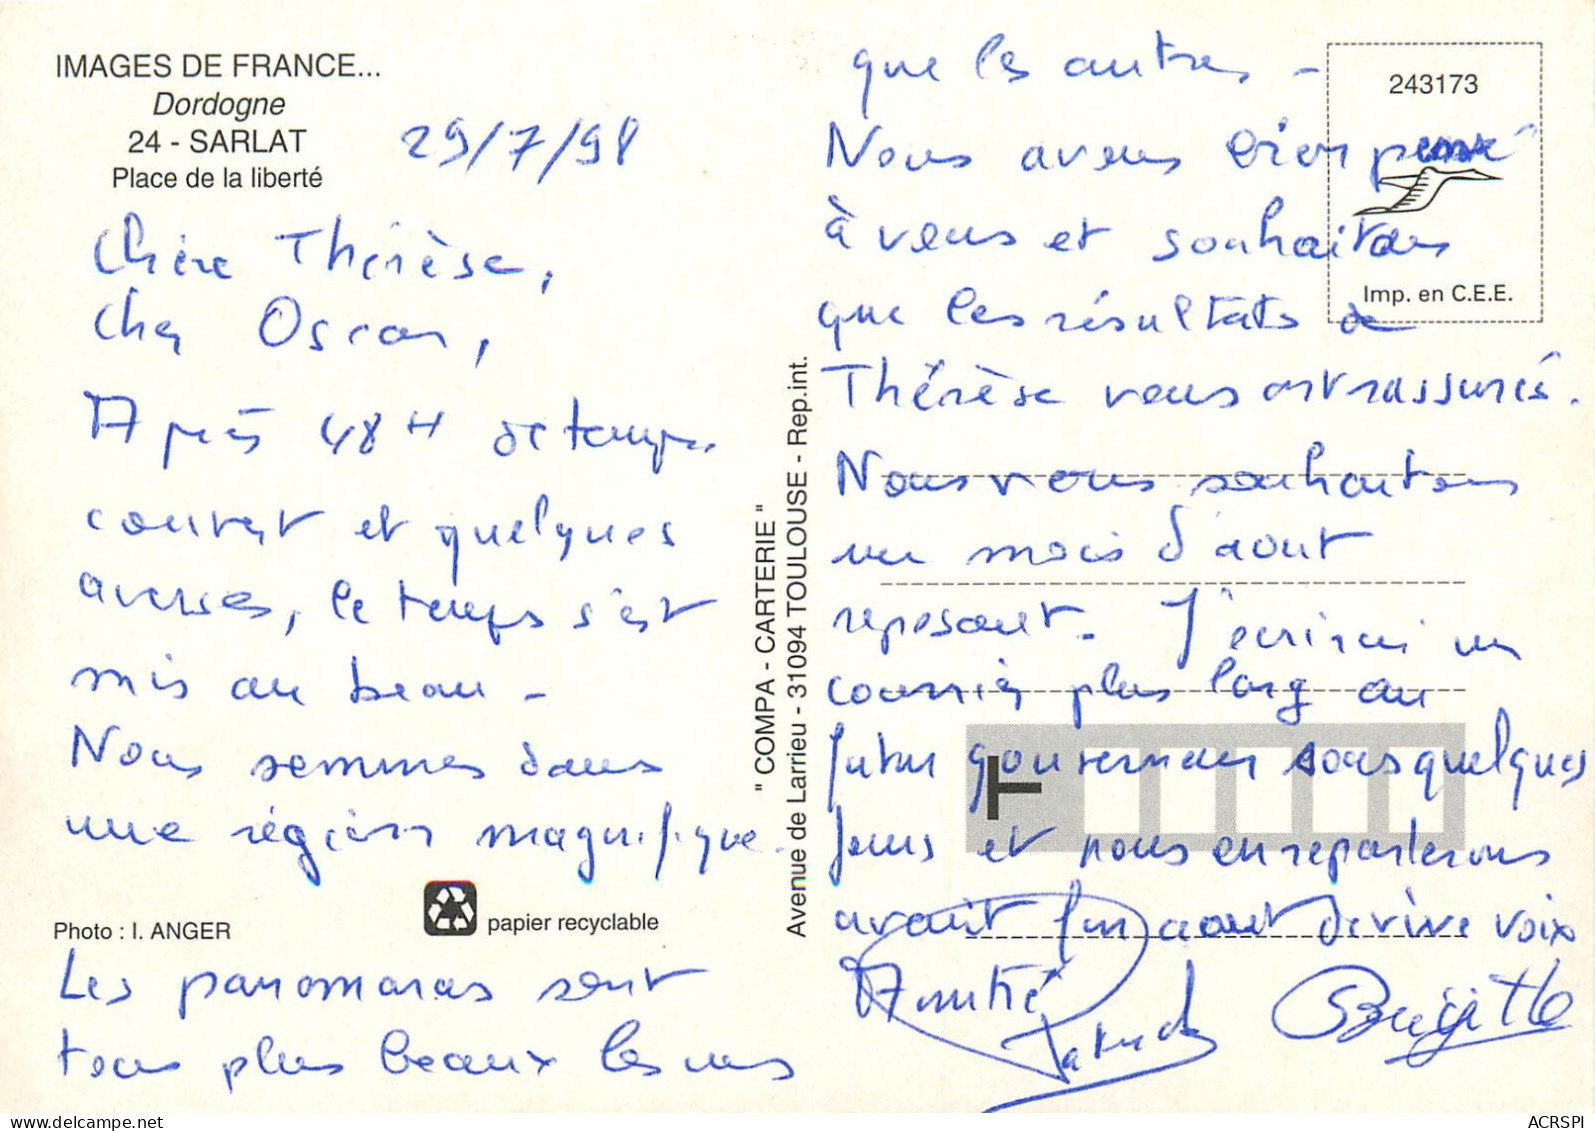 IMAGES DE FRANCE...
Dordogne
24 - SARLAT
Place de la liberté
29/7/98
Chère Thérèse,
Cher Oscar,
Après 48H de temps
couvert et quelques
averses, le temps s'est
mis au beau -
Nous sommes dans
une région magnifique.
Photo : I. ANGER
papier recyclable
Les panomaras sont
tous plus beaux les uns
" COMPA - CARTERIE "
Avenue de Larrieu - 31094 TOULOUSE - Rep.int.
que les autres -
243173
Nous avons bien pensé
à vous et souhaitons
Imp. en C.E.E.
que les résultats de
Thérèse vous ont rassurés.
Nous vous souhaitons
un mois d'aout
reposant. J'écrirai un
courrier plus long au
futur gouverneur sous quelques
jours et nous en reparlerons
avant fin aout de vive voix
T
Amitié
Patrick
Brigitte
ACRSPI